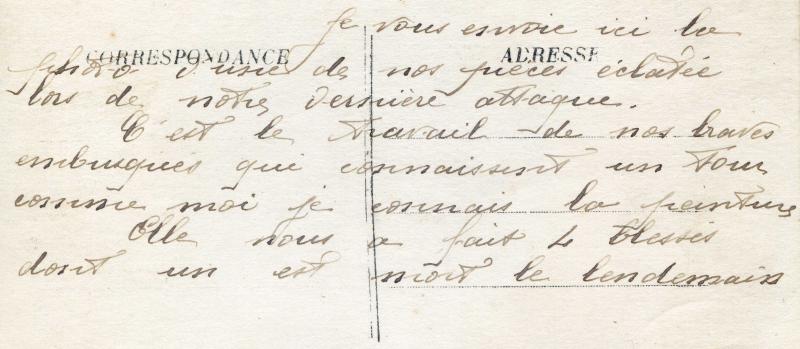 Je vous envoie ici la
CORRESPONDANCE ADRESSE
photo d'une de nos pièces éclatée
lors de notre dernière attaque.
C'est le travail de nos braves
embusqués qui connaissent un tour
comme moi je connais la peinture
Elle nous a fait 4 blessés
dont un est mort le lendemain